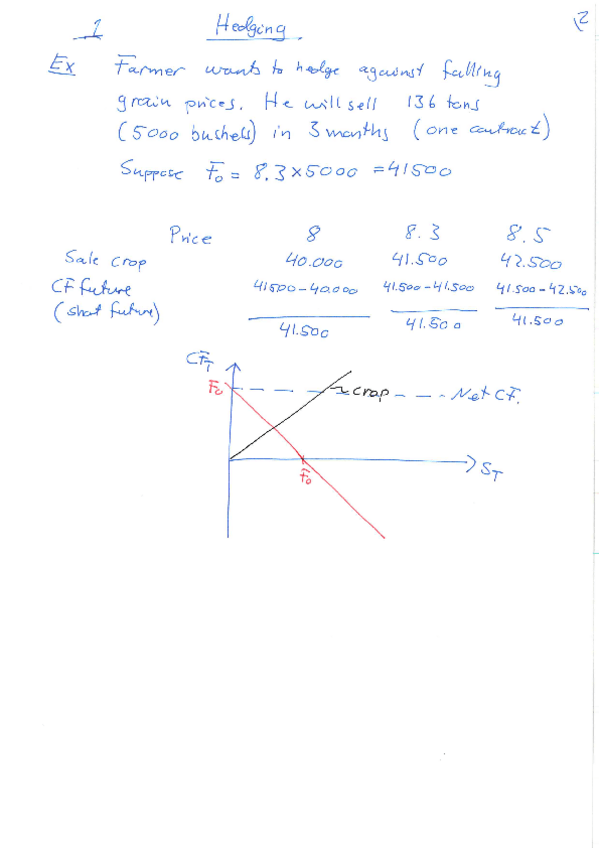 1 Hedging 12
Ex Farmer wants to hedge against falling
grain prices. He will sell 136 tons
(5000 bushels) in 3 months (one contract)
Suppose F₀ = 8.3 x 5000 = 41500
Price 8 8.3 8.5
Sale crop 40.000 41.500 42.500
CF future 41500-40.000 41.500-41.500 41.500-42.500
(short future)
41.500 41.500 41.500
CF_T
F₀ crop Net CF.
F₀ S_T